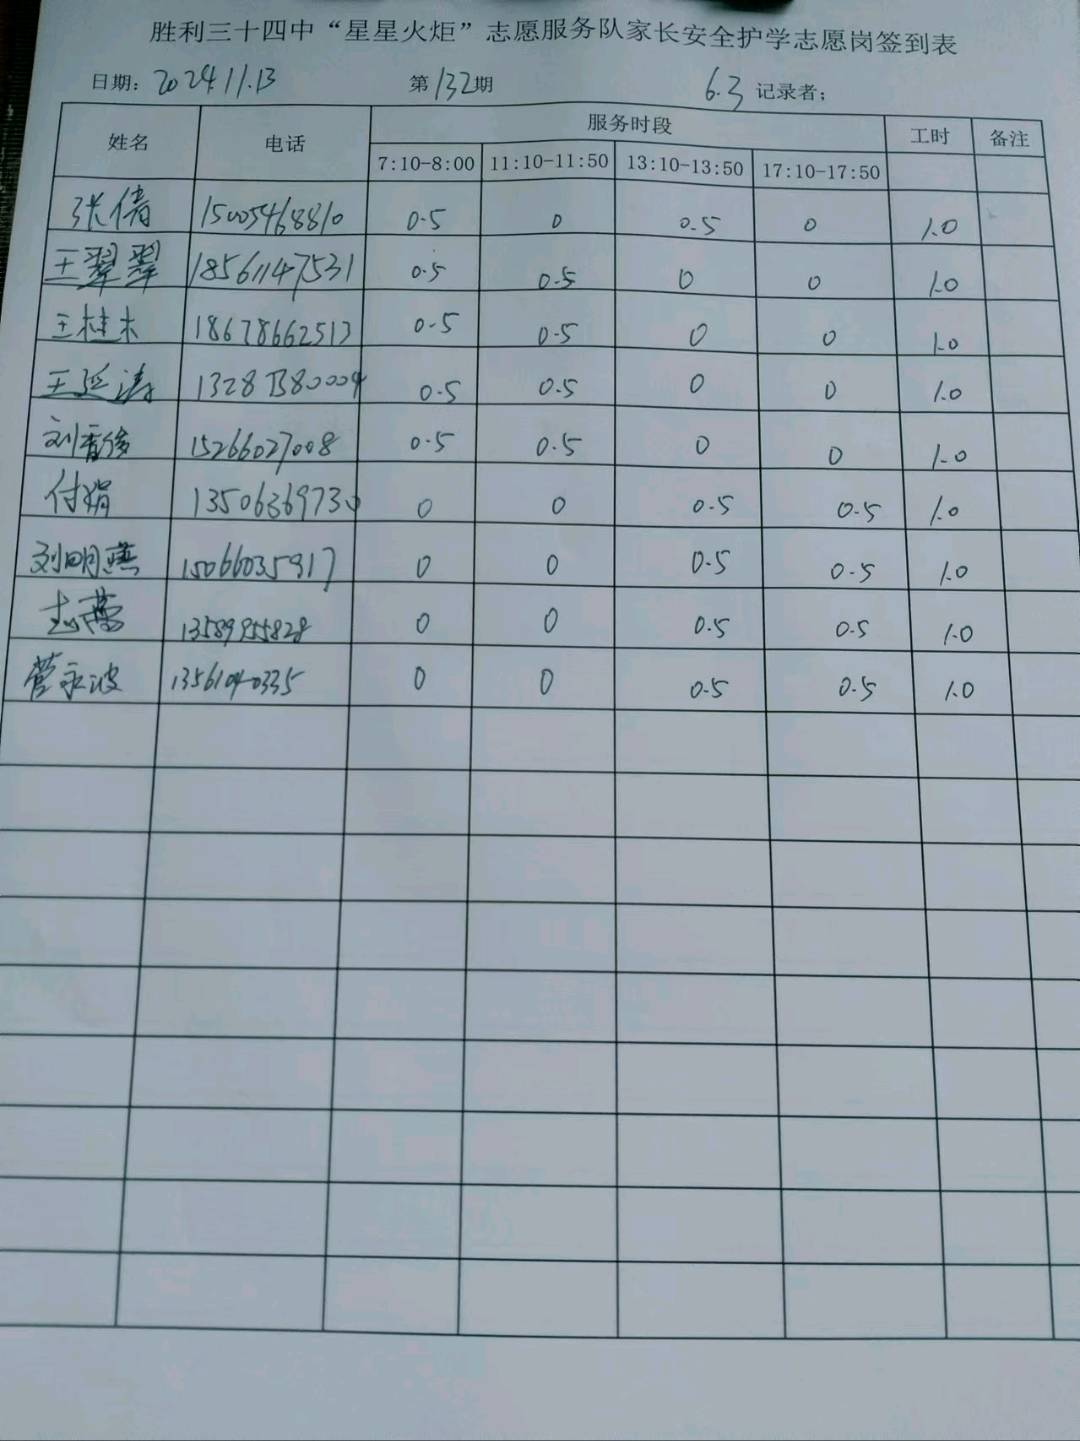 胜利三十四中“星星火炬”志愿服务队家长安全护学志愿岗签到表
日期: 2024.11.13 第132期 6.3 记录者;
姓名 电话 服务时段 工时 备注
7:10-8:00 11:10-11:50 13:10-13:50 17:10-17:50
张倩 15005468810 0.5 0 0.5 0 1.0
王翠翠 18561147531 0.5 0.5 0 0 1.0
王桂木 18678662513 0.5 0.5 0 0 1.0
王延涛 13281380004 0.5 0.5 0 0 1.0
刘香俊 15266027008 0.5 0.5 0 0 1.0
付娟 13506369730 0 0 0.5 0.5 1.0
刘明燕 15066035917 0 0 0.5 0.5 1.0
13589955828 0 0 0.5 0.5 1.0
菅永波 13561040335 0 0 0.5 0.5 1.0